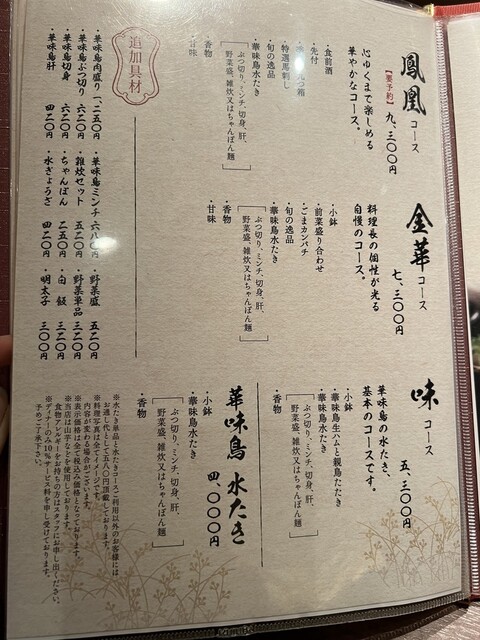 鳳凰コース
【要予約】九、三〇〇円
心ゆくまで楽しめる
華やかなコース。
・食前酒
・先付
・特選馬刺し
・旬の逸品
・華味鳥水たき
ぶつ切り、ミンチ、切身、肝、
野菜盛、雑炊又はちゃんぽん麺
・香物
・甘味
金華コース
七、三〇〇円
料理長の個性が光る
自慢のコース。
・小鉢
・前菜盛り合わせ
・ごまカンパチ
・旬の逸品
・華味鳥水たき
ぶつ切り、ミンチ、切身、肝、
野菜盛、雑炊又はちゃんぽん麺
・香物
・甘味
味コース
五、三〇〇円
華味鳥の水たき、
基本のコースです。
・小鉢
・華味鳥生ハムと親鳥たたき
・華味鳥水たき
ぶつ切り、ミンチ、切身、肝、
野菜盛、雑炊又はちゃんぽん麺
・香物
華味鳥 水たき
四、〇〇〇円
・小鉢
・華味鳥水たき
ぶつ切り、ミンチ、切身、肝、
野菜盛、雑炊又はちゃんぽん麺
・香物
追加具材
・華味鳥肉盛り 一、二五〇円
・華味鳥ぶつ切り 六二〇円
・華味鳥切身 六二〇円
・華味鳥肝 四二〇円
・華味鳥ミンチ 六八〇円
・雑炊セット 五二〇円
・ちゃんぽん 二五〇円
・水ぎょうざ 四二〇円
・野菜盛 五二〇円
・野菜単品 三二〇円
・白飯 三二〇円
・明太子 三〇〇円
※水たき単品と水たきコースご利用以外のお客様には
お通し代として五八〇円頂戴しております。
※料理写真は全てイメージです。
内容が変わる場合がございます。
※表示価格は全て税込み価格となっております。
※当店は山芋などを使用しております。
食物アレルギーをお持ちの方はスタッフにお申し出ください。
※ディナーのみ10％サービス料を申し受けております。
予めご了承下さい。